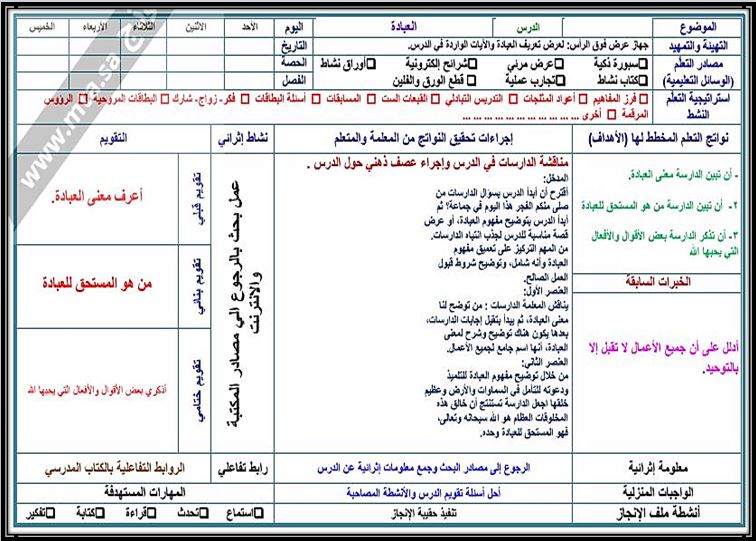 الموضوع الدرس العبادة اليوم الأحد الاثنين الثلاثاء الأربعاء الخميس
التهيئة والتمهيد جهاز عرض فوق الرأس: لعرض تعريف العبادة والآيات الواردة في الدرس. التاريخ
مصادر التعلم ❑سبورة ذكية ❑عرض مرئي ❑شرائح إلكترونية ❑أوراق نشاط الحصة
(الوسائل التعليمية) ❑كتاب نشاط ❑تجارب عملية ❑ قطع الورق والفلين الفصل
استراتيجية التعلم ❑ فرز المفاهيم ❑ أعواد المثلجات ❑ التدريس التبادلي ❑ القبعات الست ❑ المسابقات ❑ أسئلة البطاقات ❑ فكر- زواج- شارك ❑ البطاقات المروحية ❑ الرؤوس
النشط المرقمة ❑ أخرى ... ... ... ... ... ... ... ... ... ...
نواتج التعلم المخطط لها (الأهداف) إجراءات تحقيق النواتج من المعلمة والمتعلم نشاط إثرائي التقويم
١- أن تبين الدارسة معنى العبادة.
٢- أن تبين الدارسة من هو المستحق للعبادة
٣- أن تذكر الدارسة بعض الأقوال والأفعال
التي يحبها الله
الخبرات السابقة
أدلل على أن جميع الأعمال لا تقبل إلا
بالتوحيد.
مناقشة الدارسات في الدرس وإجراء عصف ذهني حول الدرس .
المدخل:
أقترح أن أبدأ الدرس بسؤال الدارسات من
صلى منكم الفجر هذا اليوم في جماعة؟ ثم
أبدأ الدرس بتوضيح مفهوم العبادة، أو عرض
قصة مناسبة للدرس لجذب انتباه الدارسات.
من المهم التركيز على تعميق مفهوم
العبادة وأنه شامل، وتوضيح شروط قبول
العمل الصالح.
العنصر الأول:
يناقش المعلمة الدارسات : من توضح لنا
معنى العبادة، ثم يبدأ بتقبل إجابات الدارسات،
بعدها يكون هناك توضيح وشرح لمعنى
العبادة، أنها اسم جامع لجميع الأعمال.
العنصر الثاني:
من خلال توضيح مفهوم العبادة للتلميذ
ودعوته للتأمل في السماوات والأرض وعظيم
خلقها اجعل الدارسة تستنتج أن خالق هذه
المخلوقات العظام هو الله سبحانه وتعالى،
فهو المستحق للعبادة وحده.
عمل بحث بالرجوع الي مصادر المكتبة
والانترنت
تقويم قبلي
أعرف معنى العبادة.
تقويم بنائي
من هو المستحق للعبادة
تقويم ختامي
أذكري بعض الأقوال والأفعال التي يحبها الله
معلومة إثرائية الرجوع إلى مصادر البحث وجمع معلومات إثرائية عن الدرس رابط تفاعلي الروابط التفاعلية بالكتاب المدرسي
الواجبات المنزلية أحل أسئلة تقويم الدرس والأنشطة المصاحبة المهارات المستهدفة
أنشطة ملف الإنجاز تنفيذ حقيبة الإنجاز ❑استماع ❑تحدث ❑قراءة ❑كتابة ❑تفكير